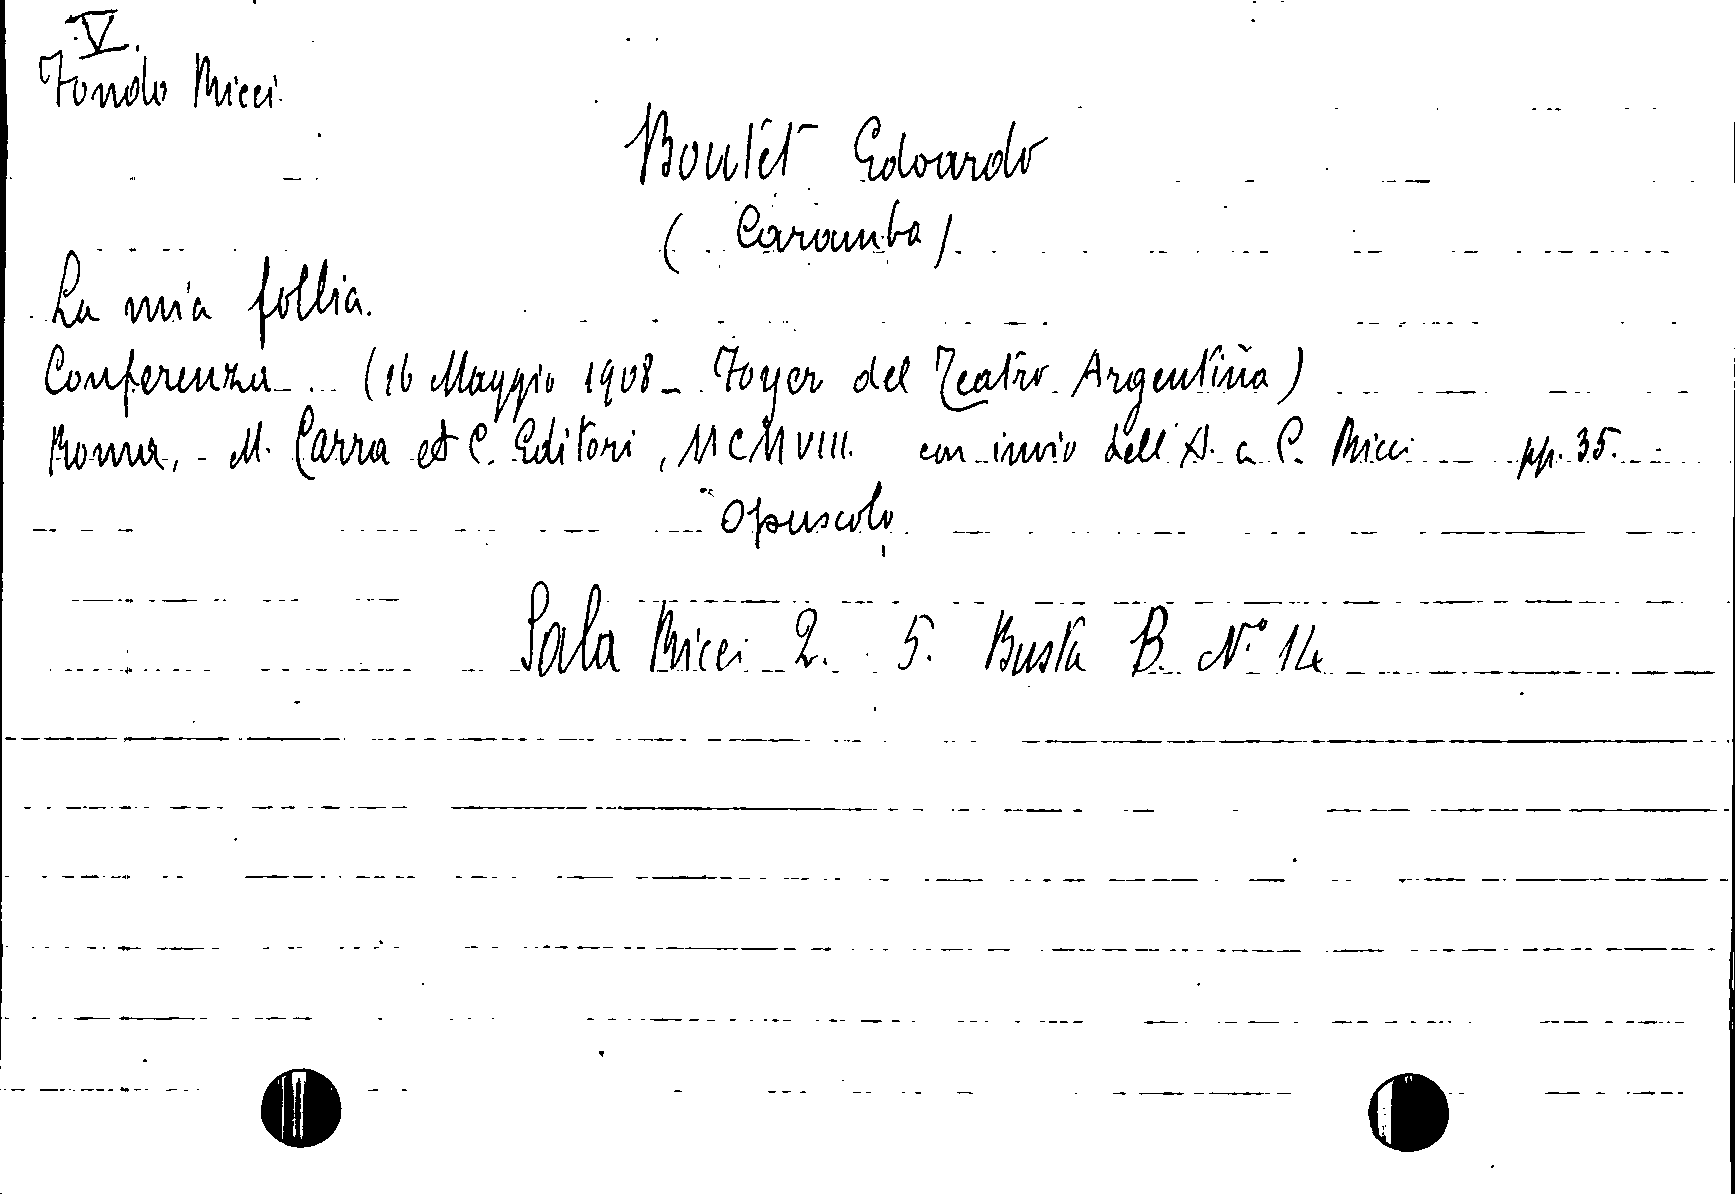 V.
Fondo Ricci
Boutet Edoardo
(Caramba)
La mia follia.
Conferenza (16 Maggio 1908 - Foyer del Teatro Argentina)
Roma, - M. Carra et C. Editori, MCMVIII. con invio dell'A. a C. Ricci pp. 35.
Opuscolo
Sala Ricci 2. 5. Busta B. N° 14